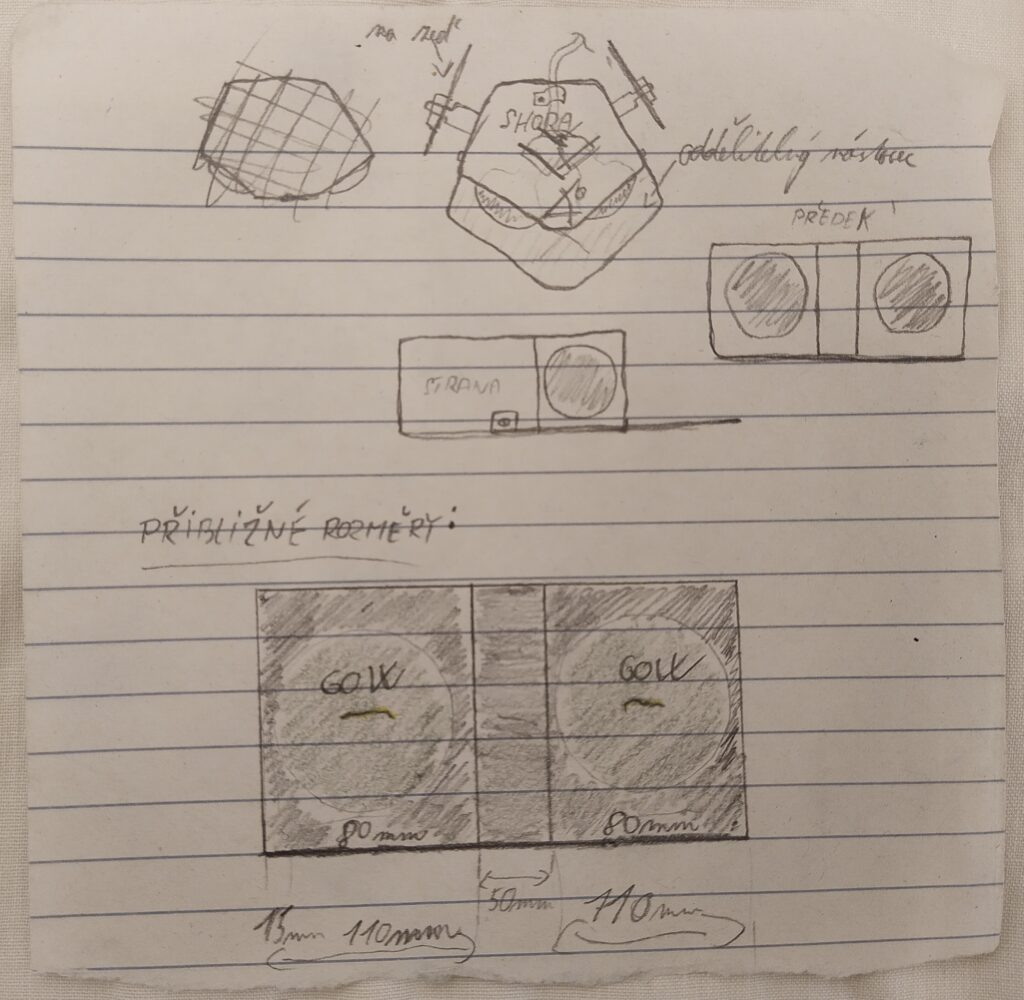 na zeď
SHORA
oddělitelný nástavec
PŘEDEK
STRANA
PŘIBLIŽNÉ ROZMĚRY:
60W 60W
80mm 80mm
50mm
15mm 110mm 110mm